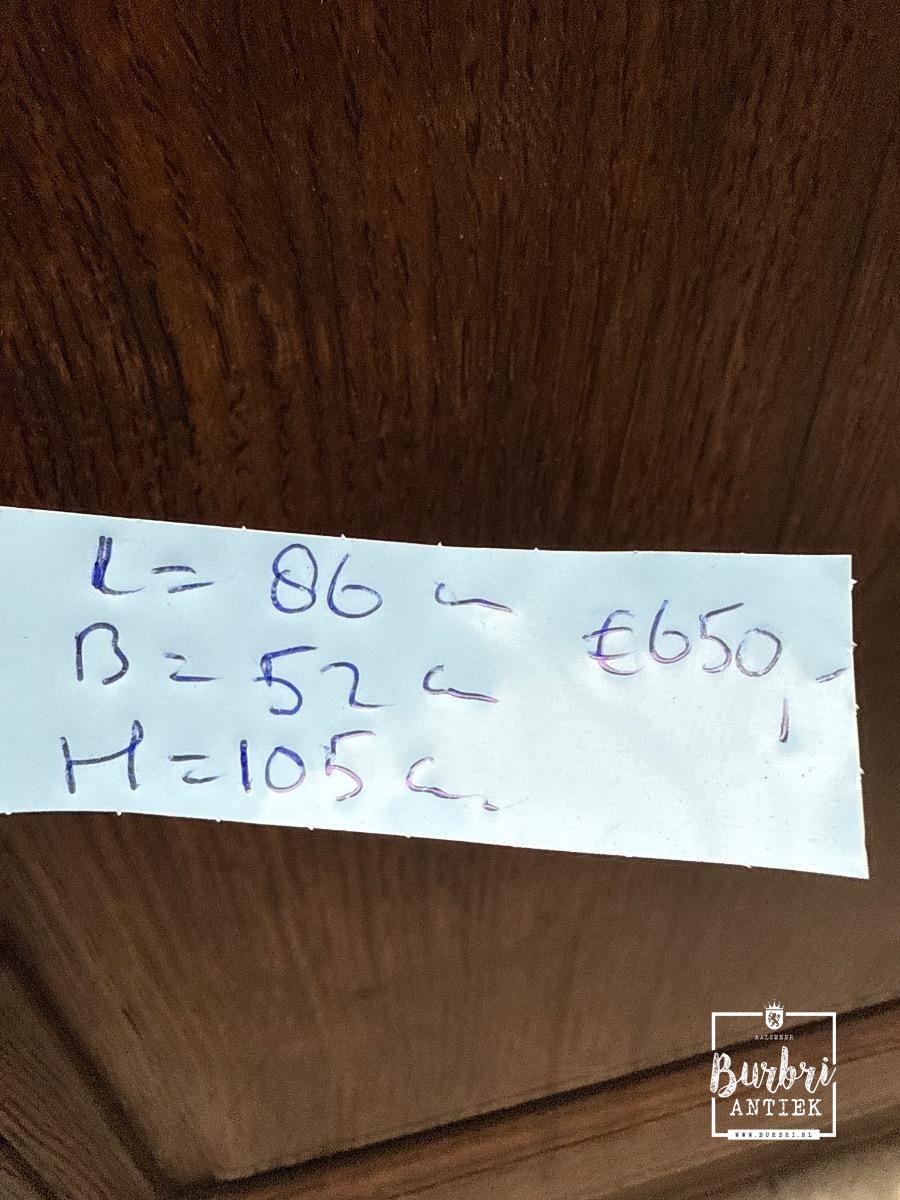 L = 86 cm
B = 52 cm
€650,-
H = 105 cm
AALSMEER
Burbri
ANTIEK
WWW.BURBRI.NL